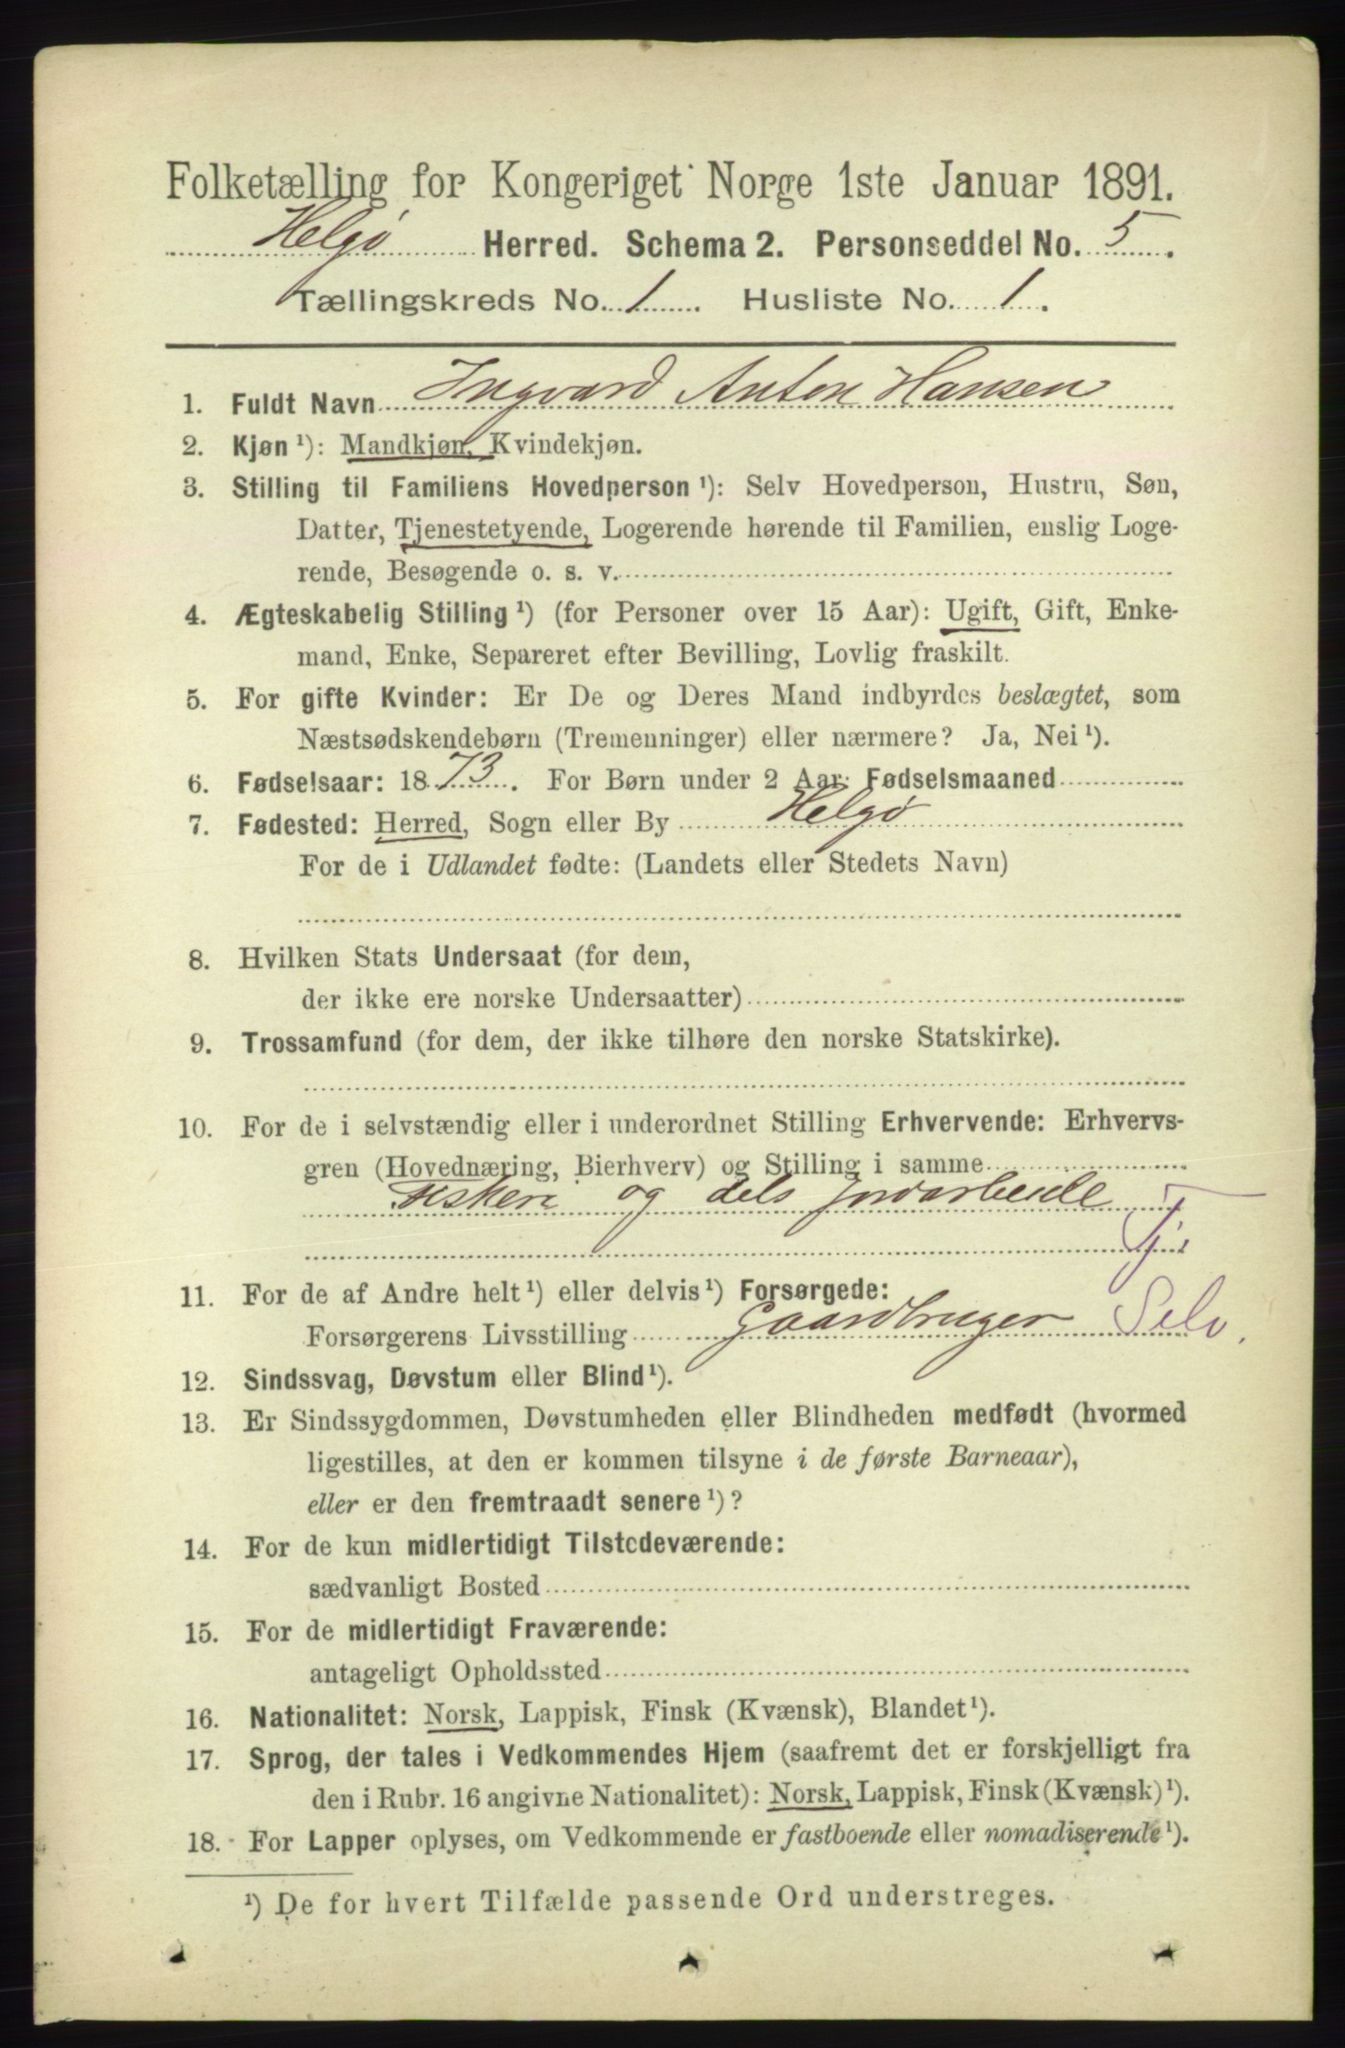 Folketælling for Kongeriget Norge 1ste Januar 1891.
Helgø Herred. Schema 2. Personseddel No. 5.
Tællingskreds No. 1. Husliste No. 1.
1. Fuldt Navn Ingvard Anton Hansen
2. Kjøn ¹): Mandkjøn, Kvindekjøn.
3. Stilling til Familiens Hovedperson ¹): Selv Hovedperson, Hustru, Søn,
Datter, Tjenestetyende, Logerende hørende til Familien, enslig Loge-
rende, Besøgende o. s. v.
4. Ægteskabelig Stilling ¹) (for Personer over 15 Aar): Ugift, Gift, Enke-
mand, Enke, Separeret efter Bevilling, Lovlig fraskilt.
5. For gifte Kvinder: Er De og Deres Mand indbyrdes beslægtet, som
Næstsødskendebørn (Tremenninger) eller nærmere? Ja, Nei ¹).
6. Fødselsaar: 1873. For Børn under 2 Aar: Fødselsmaaned
7. Fødested: Herred, Sogn eller By Helgø
For de i Udlandet fødte: (Landets eller Stedets Navn)
8. Hvilken Stats Undersaat (for dem,
der ikke ere norske Undersaatter)
9. Trossamfund (for dem, der ikke tilhøre den norske Statskirke).
10. For de i selvstændig eller i underordnet Stilling Erhvervende: Erhvervs-
gren (Hovednæring, Bierhverv) og Stilling i samme
Fiskeri og dels jordarbeide
Tj.
11. For de af Andre helt ¹) eller delvis ¹) Forsørgede:
Forsørgerens Livsstilling Gaardbruger Selv.
12. Sindssvag, Døvstum eller Blind ¹).
13. Er Sindssygdommen, Døvstumheden eller Blindheden medfødt (hvormed
ligestilles, at den er kommen tilsyne i de første Barneaar),
eller er den fremtraadt senere ¹)?
14. For de kun midlertidigt Tilstedeværende:
sædvanligt Bosted
15. For de midlertidigt Fraværende:
antageligt Opholdssted
16. Nationalitet: Norsk, Lappisk, Finsk (Kvænsk), Blandet ¹).
17. Sprog, der tales i Vedkommendes Hjem (saafremt det er forskjelligt fra
den i Rubr. 16 angivne Nationalitet): Norsk, Lappisk, Finsk (Kvænsk) ¹).
18. For Lapper oplyses, om Vedkommende er fastboende eller nomadiserende ¹).
¹) De for hvert Tilfælde passende Ord understreges.